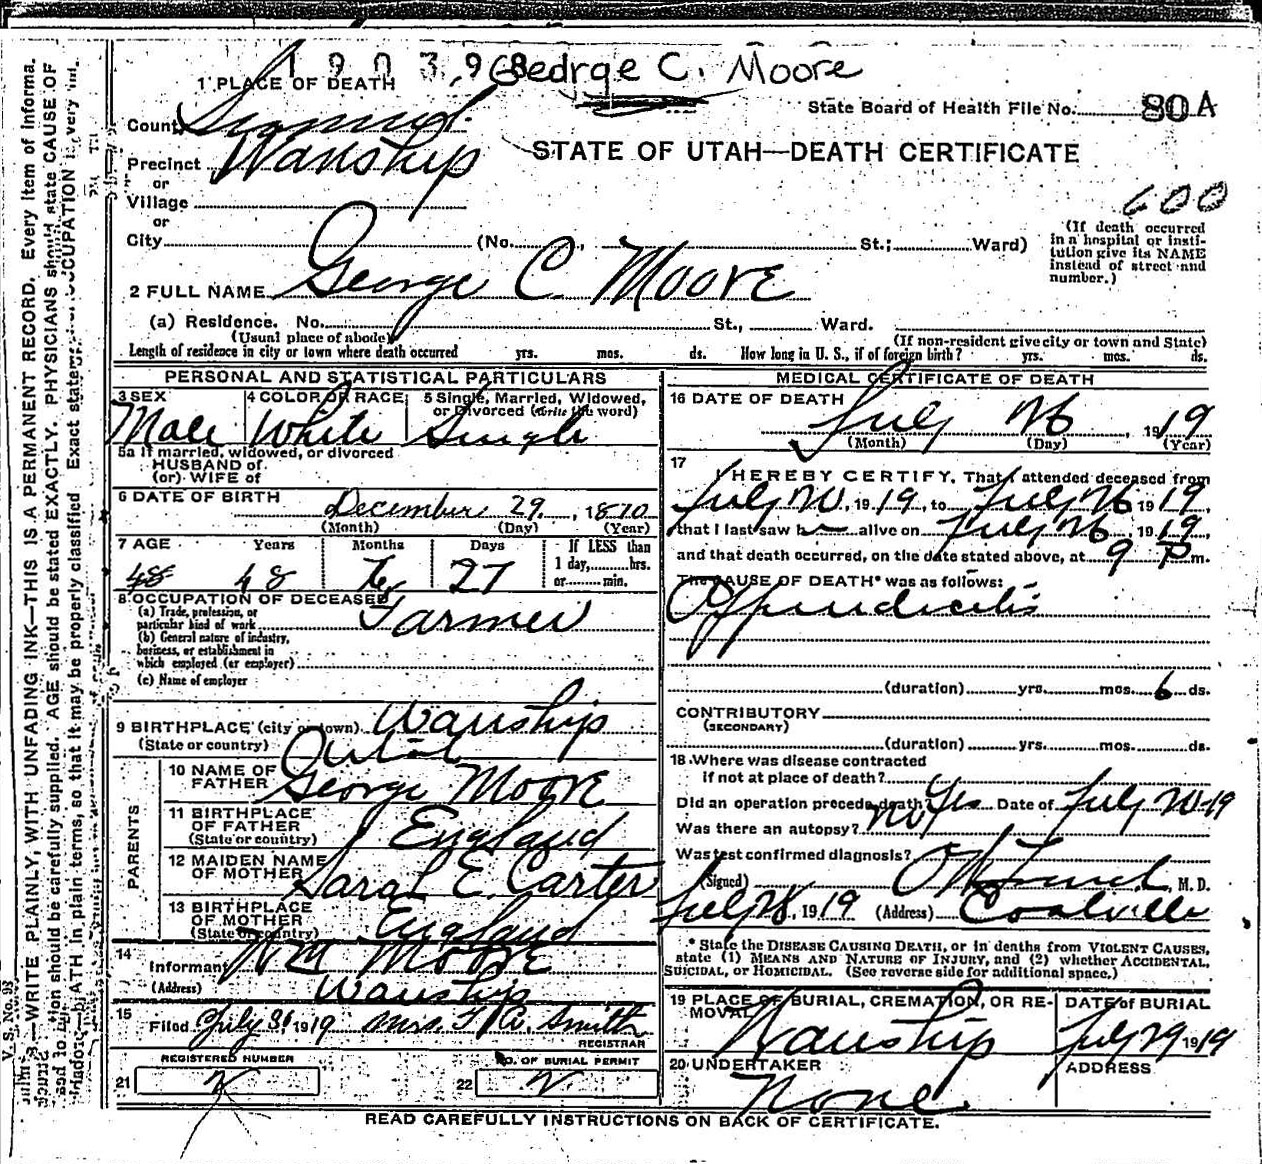 190398 George C. Moore
1 PLACE OF DEATH
State Board of Health File No. 80 A
County Summit
Precinct Wanship
STATE OF UTAH—DEATH CERTIFICATE
or
Village
600
or
City (No. , St.; Ward)
(If death occurred in a hospital or insti-
tution give its NAME
instead of street and
number.)
2 FULL NAME George C. Moore
(a) Residence. No. St., Ward.
(Usual place of abode) (If non-resident give city or town and State)
Length of residence in city or town where death occurred yrs. mos. ds. How long in U. S., if of foreign birth? yrs. mos. ds.
PERSONAL AND STATISTICAL PARTICULARS
3 SEX 4 COLOR OR RACE 5 Single, Married, Widowed,
or Divorced (write the word)
Male White Single
5a If married, widowed, or divorced
HUSBAND of
(or) WIFE of
6 DATE OF BIRTH
December 29, 1870
(Month) (Day) (Year)
7 AGE Years Months Days If LESS than
1 day, hrs.
or min.
48 48 27
8 OCCUPATION OF DECEASED
(a) Trade, profession, or
particular kind of work Farmer
(b) General nature of industry,
business, or establishment in
which employed (or employer)
(c) Name of employer
9 BIRTHPLACE (city or town) Wanship
(State or country) Utah
PARENTS
10 NAME OF
FATHER George Moore
11 BIRTHPLACE
OF FATHER
(State or country) England
12 MAIDEN NAME
OF MOTHER Sarah E. Carter
13 BIRTHPLACE
OF MOTHER
(State or country) England
14
Informant Wm Moore
(Address) Wanship
15
Filed July 31 1919 Mrs. Smith
REGISTRAR
REGISTERED NUMBER NO. OF BURIAL PERMIT
21 22
MEDICAL CERTIFICATE OF DEATH
16 DATE OF DEATH
July 26, 1919
(Month) (Day) (Year)
17
I HEREBY CERTIFY, That I attended deceased from
July 20, 1919, to July 26 1919,
that I last saw h alive on July 26 1919,
and that death occurred, on the date stated above, at 9 P m.
The CAUSE OF DEATH* was as follows:
Appendicitis
(duration) yrs. mos. 6 ds.
CONTRIBUTORY
(SECONDARY)
(duration) yrs. mos. ds.
18 Where was disease contracted
if not at place of death?
Did an operation precede death? Yes Date of July 20-19
Was there an autopsy? no
Was test confirmed diagnosis?
(Signed) M. D.
July 28, 1919 (Address) Coalville
* State the DISEASE CAUSING DEATH, or in deaths from VIOLENT CAUSES,
state (1) MEANS AND NATURE OF INJURY, and (2) whether ACCIDENTAL,
SUICIDAL, or HOMICIDAL. (See reverse side for additional space.)
19 PLACE OF BURIAL, CREMATION, OR RE-
MOVAL
Wanship
DATE of BURIAL
July 29 1919
20 UNDERTAKER
None
ADDRESS
READ CAREFULLY INSTRUCTIONS ON BACK OF CERTIFICATE.
V. S. No. 98
—WRITE PLAINLY, WITH UNFADING INK—THIS IS A PERMANENT RECORD. Every item of informa-
tion should be carefully supplied. AGE should be stated EXACTLY. PHYSICIANS should state CAUSE OF
DEATH in plain terms, so that it may be properly classified. Exact statement of OCCUPATION is very im-